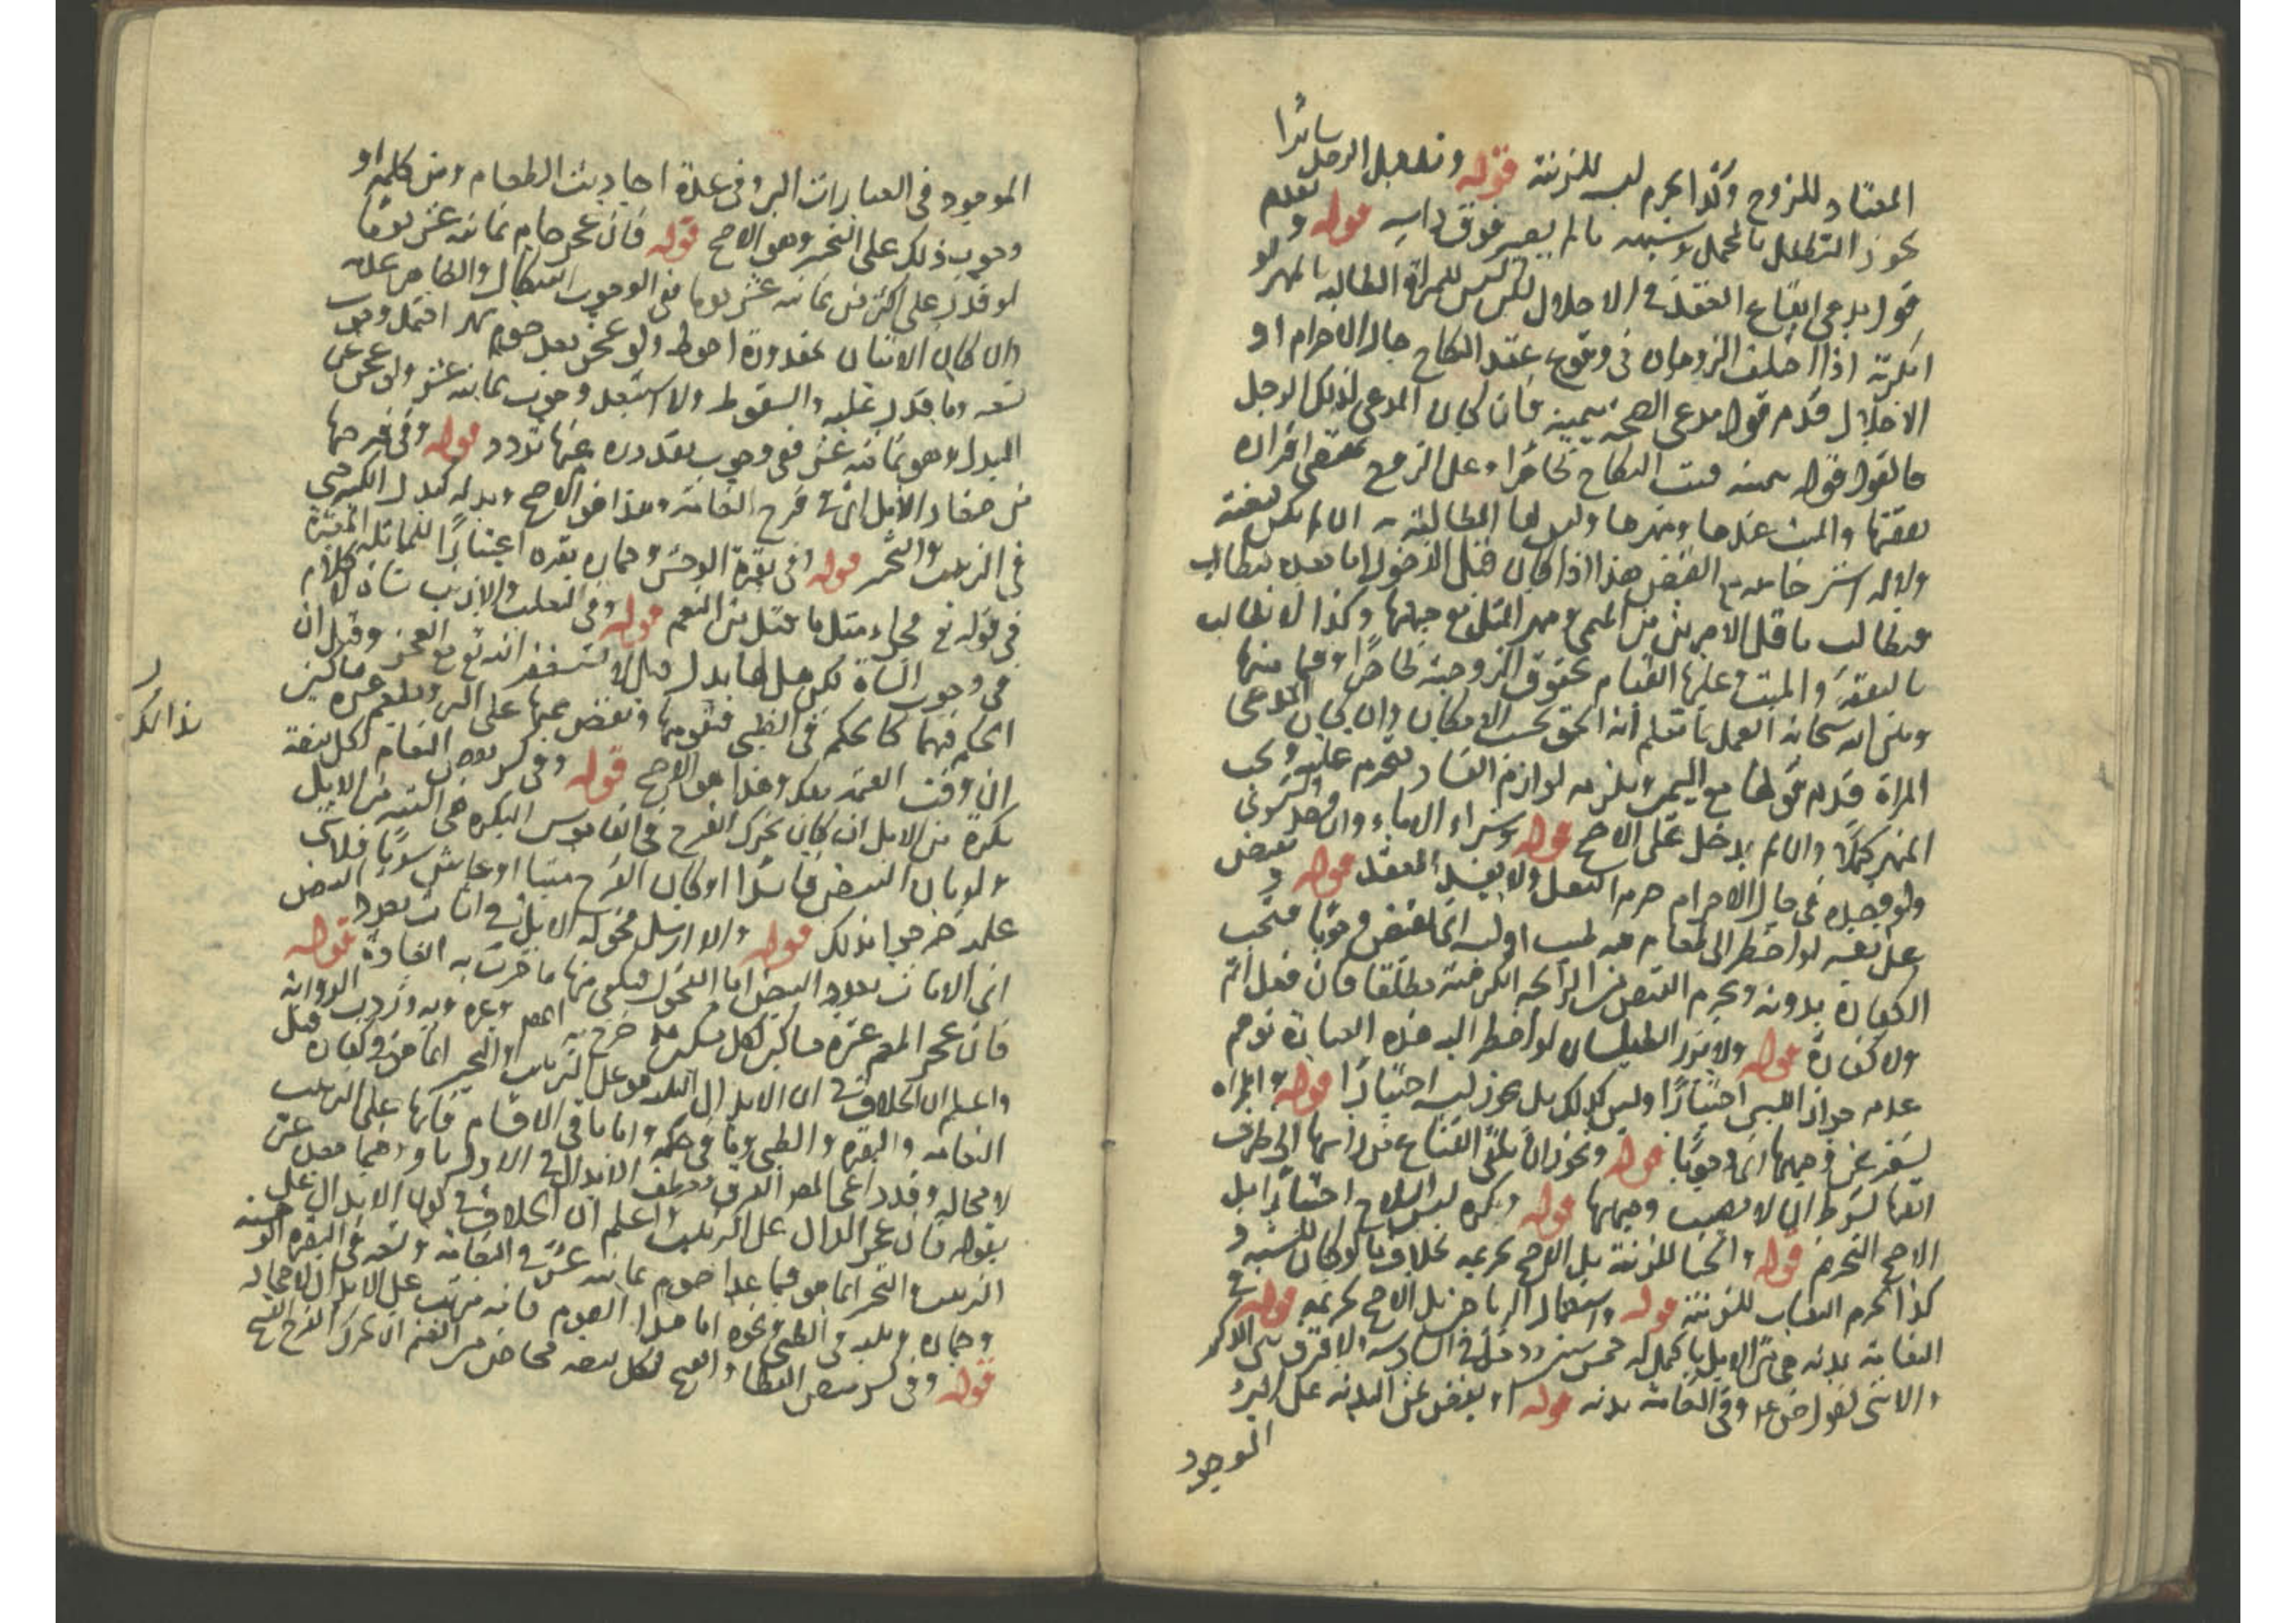 المعتاد للزوج وكذا يحرم لبسه للزينة قوله وتظليل الرجل سائرا
يجوز التظليل بالمحمل وشبهه ما لم يصر فوق راسه قوله و تقدم
قول مدعي ايقاع العقد في الاحلال لكن ليس للمراة المطالبة بالمهر لو
انكرته اذا اختلف الزوجان في وقوع عقد النكاح حال الاحرام او
الاحلال قدم قول مدعي الصحة بيمينه فان كان المدعي لذلك الرجل
فالقول قوله بيمينه فيثبت النكاح ظاهرا وعلى الزوج بمقتضى اقراره
نفقتها والمبيت عندها ومهرها وليس لها المطالبة به ان لم يكن قبضته
ولا له استرجاعه مع القبض هذا اذا كان قبل الدخول اما بعده فتطالب
فتطالب باقل الامرين من المسمى ومهر المثل مع جهلها وكذا لا تطالب
بالنفقة والمبيت وعليها القيام بحقوق الزوجية ظاهرا وفيما بينها
وبين الله سبحانه العمل بما تعلم انه الحق بحسب الامكان وان كان المدعي
المراة قدم قولها مع اليمين ويلزمه لوازم الفساد فتحرم عليه ويجب
المهر كملا وان لم يدخل على الاصح قوله وشراء الاماء وان قصد التسري
ولو قصده في حال الاحرام حرم الفعل ولا يفسد العقد قوله و يقبض
على نفسه لو اضطر الى طعام فيه طيب او لمسه انما يقبض وجوبا فتجب
الكفارة بدونه ويحرم القبض من الرائحة الكريهة مطلقا فان فعل اثم
ولا كفارة قوله ولا يزر الطيلسان لو اضطر اليه هذه العبارة توهم
عدم جواز اللبس اختيارا وليس كذلك بل يجوز لبسه اختيارا قوله والمراة
تسفر عن وجهها اي وجوبا قوله ويجوز ان تلقي القناع من راسها الى طرف
انفها بشرط ان لا يصيب وجهها قوله ويكره لبس السلاح اختيارا بل
الاصح التحريم قوله والحنا للزينة بل الاصح تحريمه بخلاف ما لو كان للسنة و
كذا يحرم النقاب للزينة قوله واستعمال الرياحين بل الاصح تحريمه قوله في
النعامة بدنه هي من الابل ما كمل له خمس سنين ودخل في السادسة ولا فرق بين الذكر
والانثى لقوله وفي النعامة بدنه قوله يفض ثمن البدنه على البر و
الموجود
الموجود في العبارات البر وفي عدة احاديث الطعام ومن كلمة او
وجوب ذلك على التخيير وهو الاصح قوله فان عجز صام ثمانية عشر يوما
لو قدر على اكثر من ثمانية عشر يوما ففي الوجوب اشكال والظاهر عدمه
وان كان الاتيان بمقدوره احوط ولو عجز بعد صوم شهر احتمل وجوب
تسعه وما قدر عليه والسقوط ولا استبعد وجوب ثمانية عشر ولو عجز عن
البدل وهو ثمانية عشر ففي وجوب مقدوره عنها تردد قوله وفي فرخها
من صغار الابل اي في فرخ النعامة وهذا هو الاصح وبدله كبدل الكبير حتى
في الترتيب والتخيير قوله وفي بقرة الوحش وحماره بقره اعتبارا للمماثلة المعتبرة
في قوله تع فجزاء مثل ما قتل من النعم قوله وفي الثعلب والارنب شاة لا كلام
في وجوب الشاة لكن هل لها بدل قيل لا فيستغفر الله تع مع العجز وقيل ان
الحكم فيهما كالحكم في الظبي فتقومها وتفض ثمنها على البر ويطعم عشرة مساكين
ان وفت القيمة بذلك وهذا هو الاصح قوله وفي كسر بيض النعام لكل بيضة
بكرة من الابل ان كان تحرك الفرخ في القاموس البكره هي الفتية من الابل
ولو بان البيض فاسدا او كان الفرخ ميتا او عاش سويا فلا شي
عليه خرجوا بذلك قوله والا ارسل فحولة الابل في اناث بعدد البيض
اي الاناث بعدد البيض اما الفحول فيكفي منها ما جرت به العادة قوله
فان عجز اطعم عشرة مساكين لكل مسكين مد
واعلم ان الخلاف في ان الابدال الثلثة هو على الترتيب او التخيير انما هو في كفارة قتل
النعامه والبقرة والظبي وما في حكمه واما باقي الاقسام فانها على الترتيب
لا محالة
بقوله فان عجز الدال على الترتيب واعلم ان الخلاف في كون الابدال على
الترتيب او التخيير انما هو فيما عدا صوم ثمانية عشر في النعامة وتسعه في البقره الوحشية
وحماره وثلثة في الظبي ونحوه اما هذا الصوم فانه مرتب على الابدال لا محالة
قوله وفي كسر بيض القطا والقبج لكل بيضة مخاض من الغنم ان تحرك الفرخ القبج